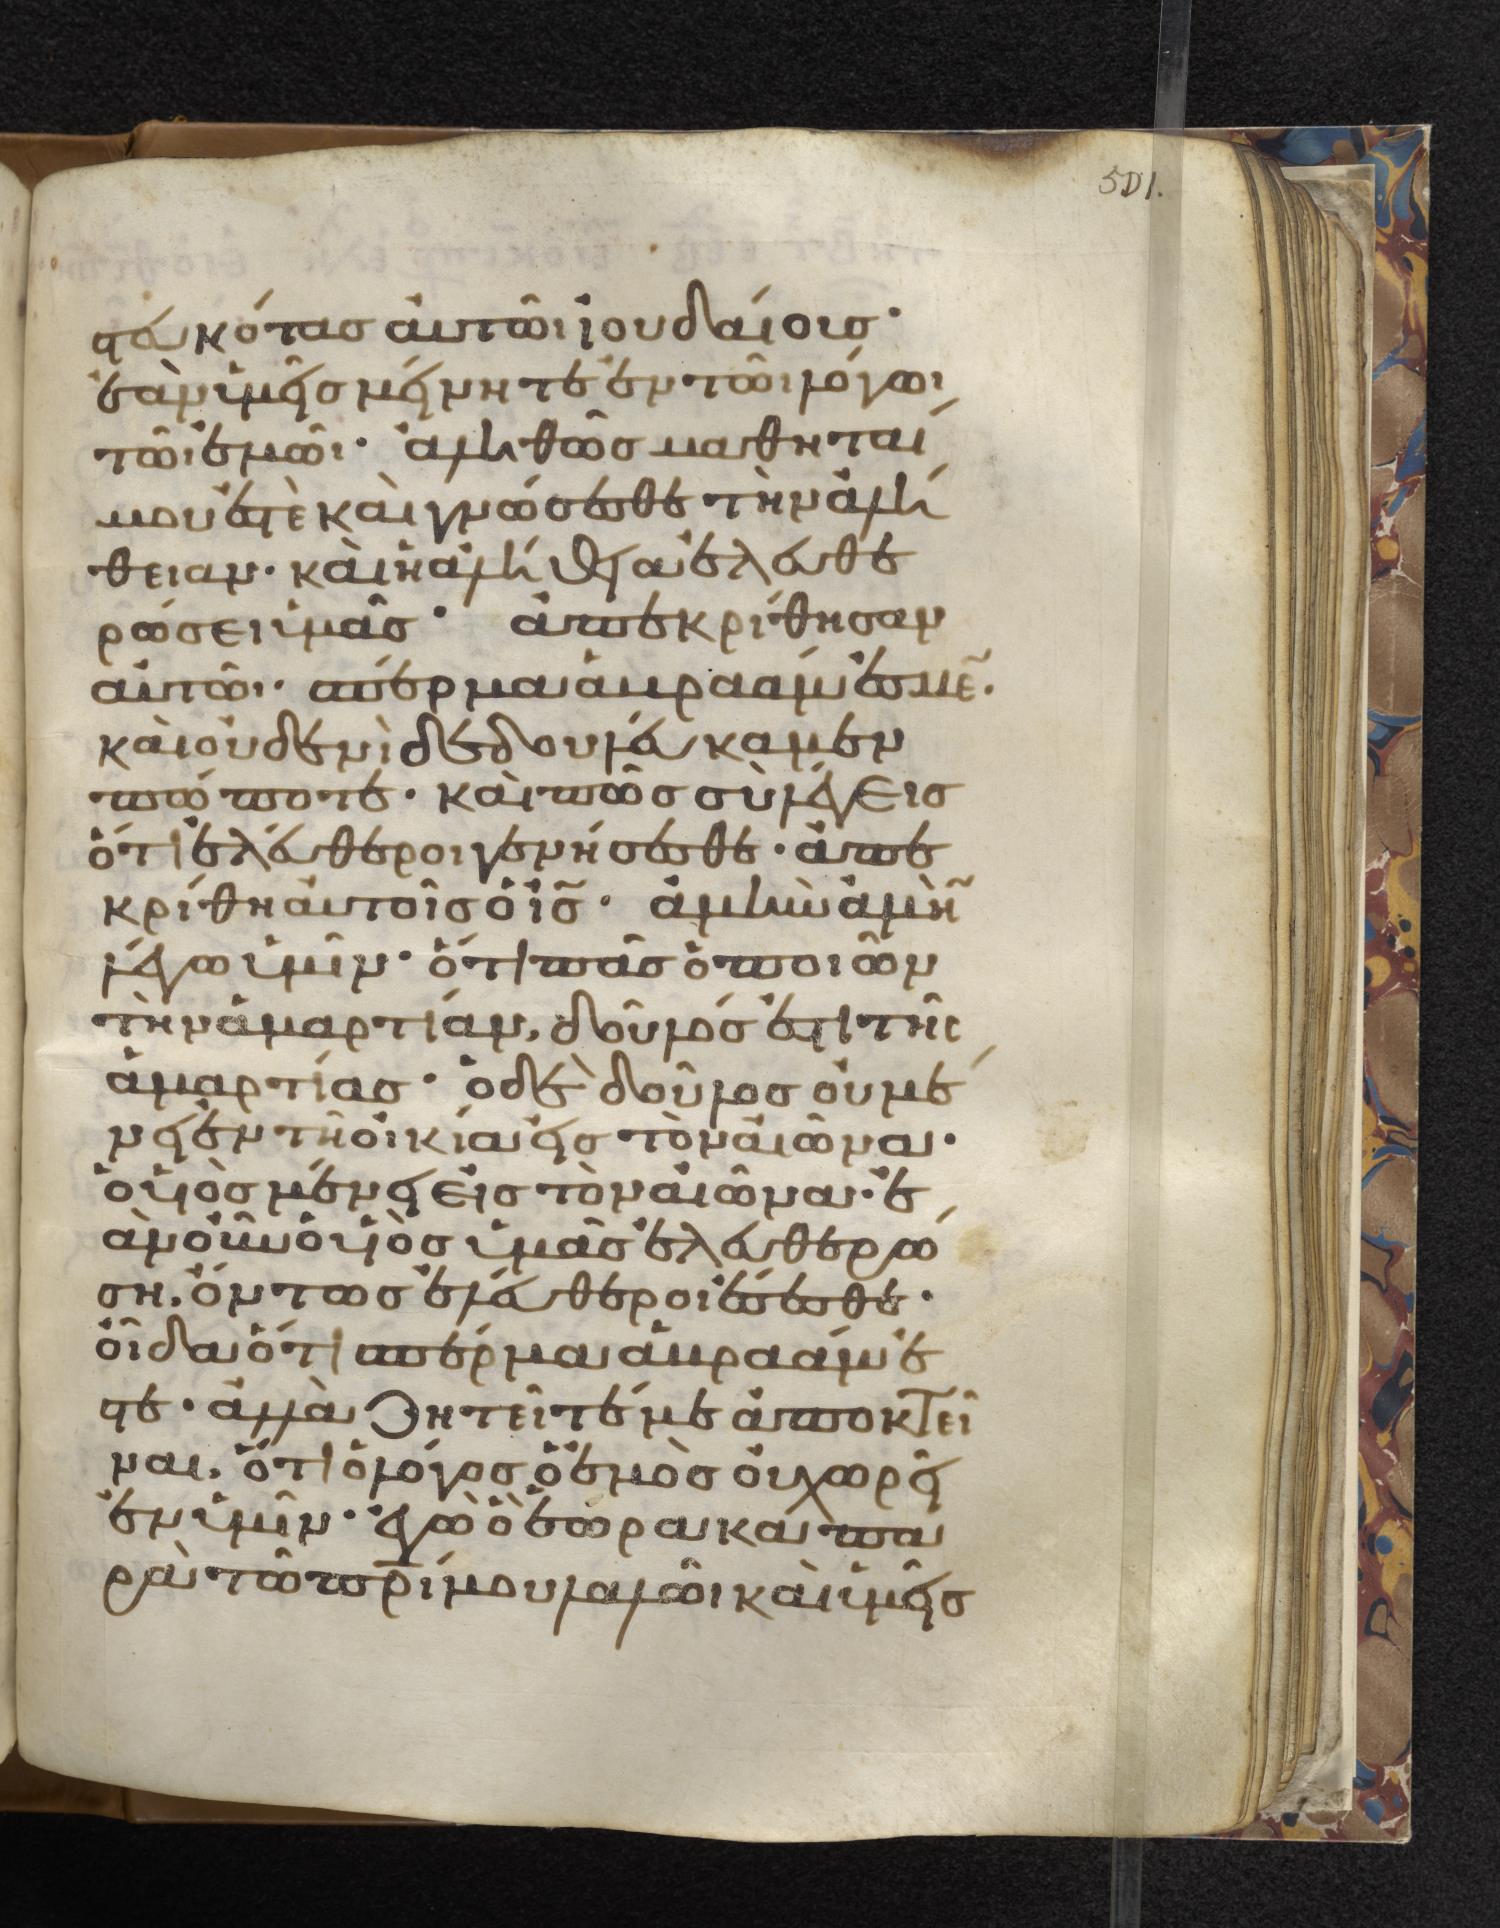 501.
στευκότας αὐτῶι ἰουδαίοις·
ἐὰν ὑμεῖς μείνητε ἐν τῶι λόγωι
τῶι ἐμῶι· ἀληθῶς μαθηταί
μου ἐστὲ καὶ γνώσεσθε τὴν ἀλή
θειαν· καὶ ἡ ἀλήθεια ἐλευθε
ρώσει ὑμᾶς· ἀπεκρίθησαν
αὐτῶι· σπέρμα ἀβραάμ ἐσμε̃.
καὶ οὐδενὶ δεδουλεύκαμεν
πώποτε· καὶ πῶς σὺ λέγεις
ὅτι ἐλεύθεροι γενήσεσθε· ἀπε
κρίθη αὐτοῖς ὁ ἰ̅ς̅· ἀμὴν ἀμὴ̃
λέγω ὑμῖν· ὅτι πᾶς ὁ ποιῶν
τὴν ἁμαρτίαν, δοῦλός ἐστι τῆς
ἁμαρτίας· ὁ δὲ δοῦλος οὐ μέ
νει ἐν τῆ οἰκία εἰς τὸν αἰῶνα·
ὁ υἱὸς μένει εἰς τὸν αἰῶνα· ἐ
ὰν οὖν ὁ υἱὸς ὑμᾶς ἐλευθερώ
ση, ὄντως ἐλεύθεροι ἔσεσθε·
οἶδα ὅτι σπέρμα ἀβραάμ ἐ
στε· ἀλλὰ ζητεῖτέ με ἀποκτεῖ
ναι, ὅτι ὁ λόγος ὁ ἐμὸς οὐ χωρεῖ
ἐν ὑμῖν· ἐγὼ ὃ ἑώρακα πα
ρὰ τῶ π̅ρ̅ί μου λαλῶι καὶ ὑμεῖς